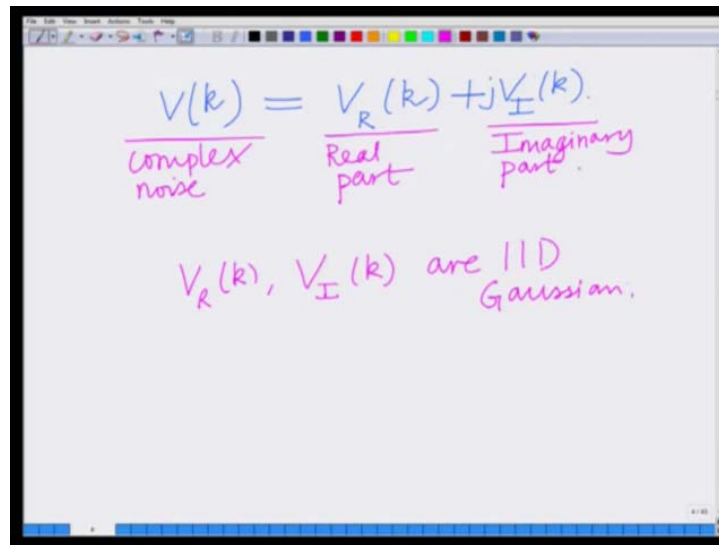 File Edit View Insert Actions Tools Help
V(k) = V_R(k) + jV_I(k).
complex noise
Real part
Imaginary part.
V_R(k), V_I(k) are IID
Gaussian.